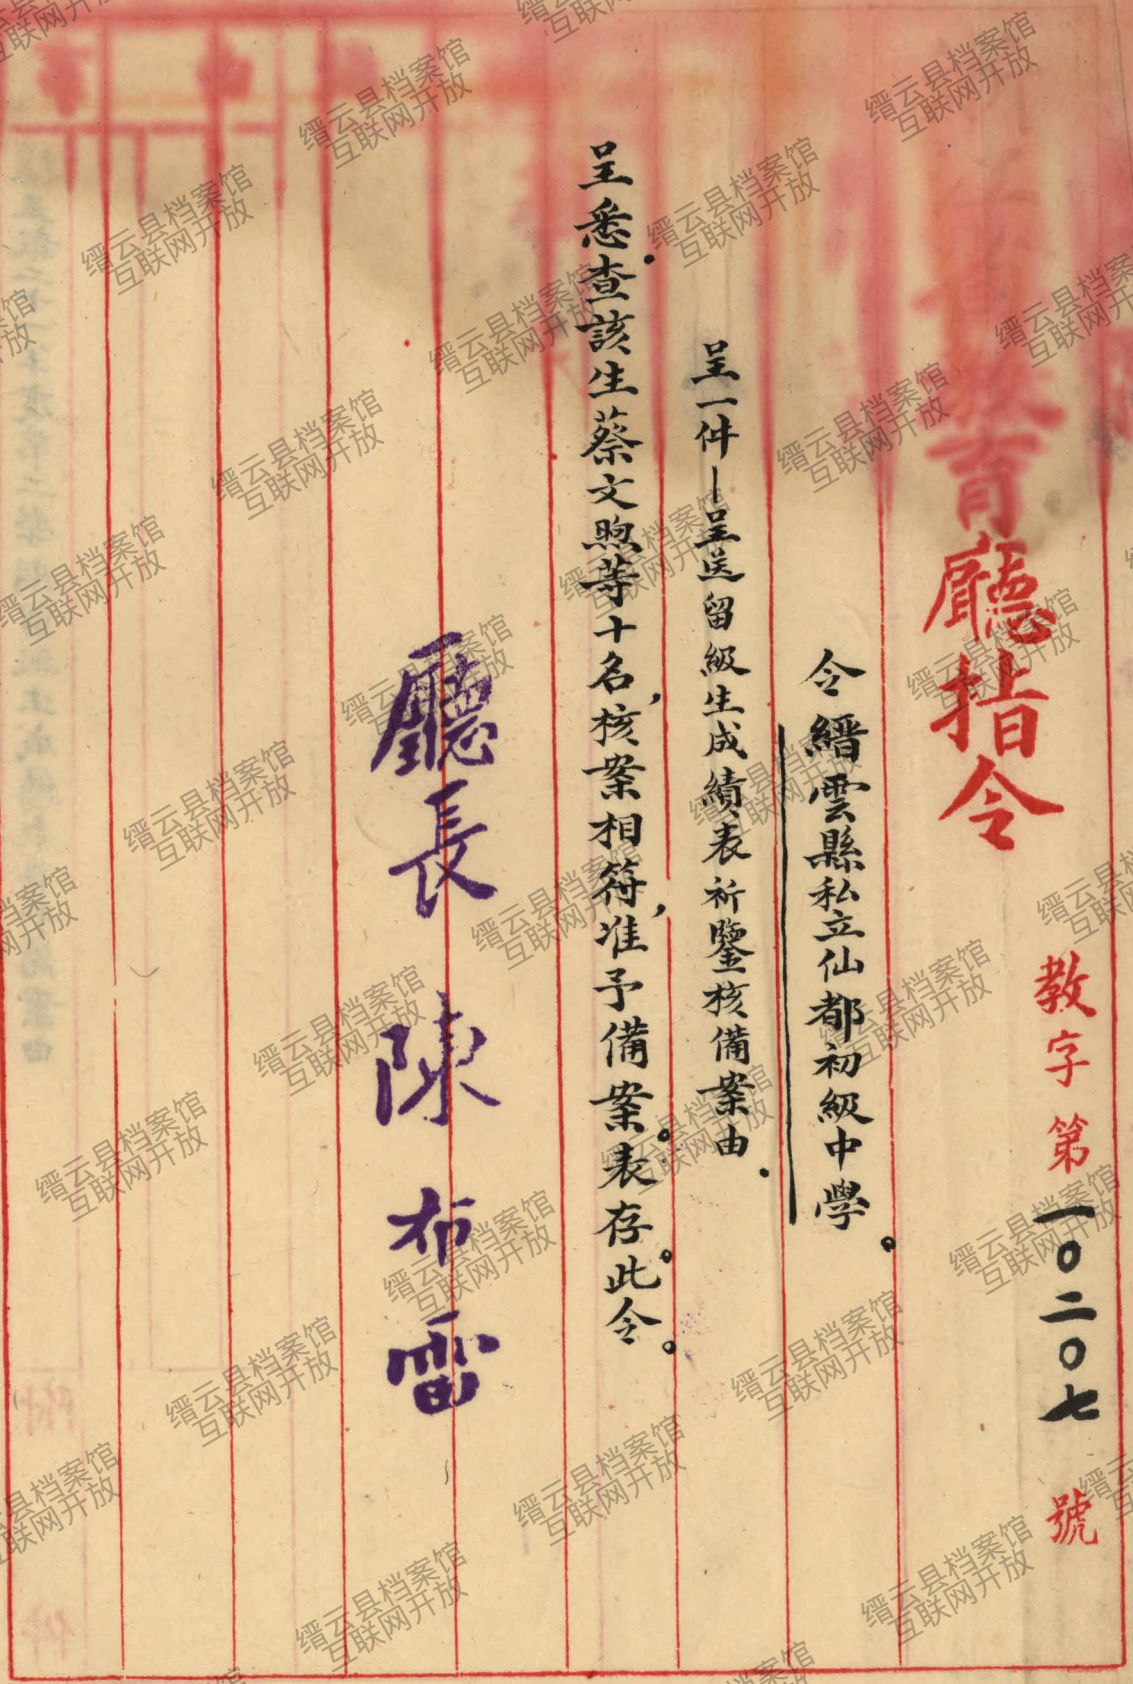 教育廳指令
教字第一〇二〇七號
令縉雲縣私立仙都初級中學。
呈一件—呈送留級生成績表祈鑒核備案由.
呈悉.查該生蔡文煦等十名,核案相符,准予備案。表存。此令。
廳長陳布雷
缙云县档案馆
互联网开放